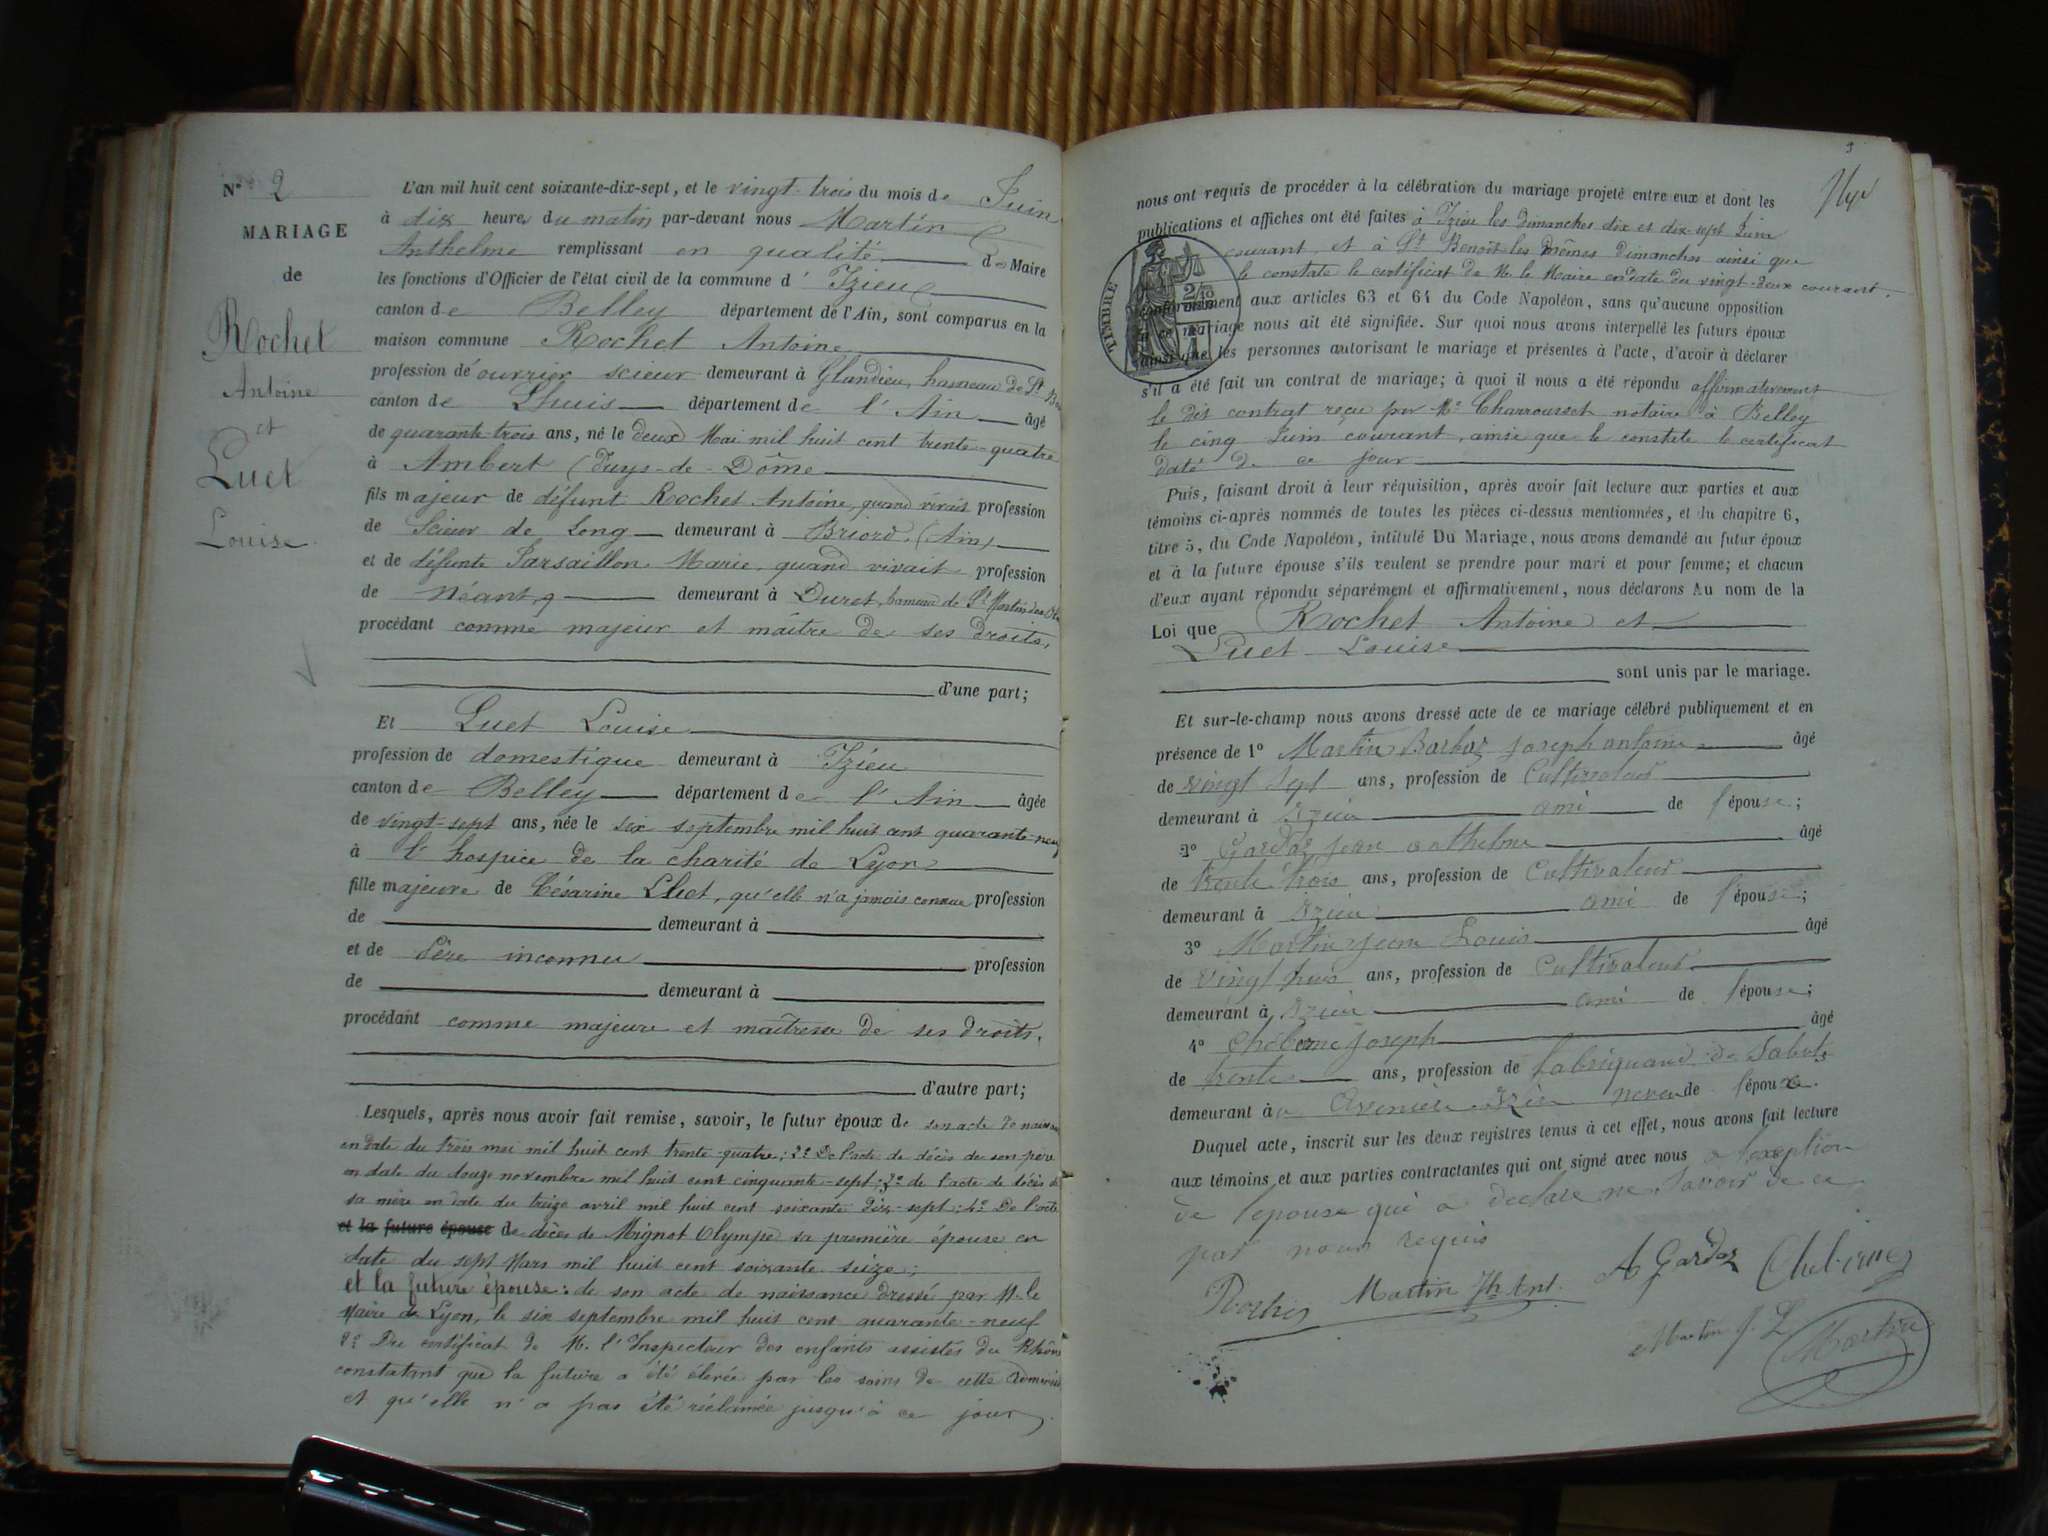 N° 2
MARIAGE
de
Rochet
Antoine
et
Luet
Louise
L'an mil huit cent soixante-dix-sept, et le vingt-trois du mois de Juin
à dix heures du matin par-devant nous Martin
Anthelme remplissant en qualité de Maire
les fonctions d'Officier de l'état civil de la commune d'Izieu
canton de Belley département de l'Ain, sont comparus en la
maison commune Rochet Antoine
profession de ouvrier scieur demeurant à Glandieu, hameau de St
canton de Lhuis département de l'Ain âgé
de quarante-trois ans, né le deux Mai mil huit cent trente-quatre
à Ambert (Puys-de-Dôme
fils majeur de défunt Rochet Antoine, quand vivait profession
de Scieur de Long demeurant à Briord, (Ain)
et de défunte Marie, quand vivait profession
de Néant, demeurant à Duret, hameau de St Martin des
procédant comme majeur et maître de ses droits,
d'une part;
Et Luet Louise
profession de domestique demeurant à Izieu
canton de Belley département de l'Ain âgée
de vingt-sept ans, née le six septembre mil huit cent quarante-neuf
à l'hospice de la charité de Lyon
fille majeure de Césarine Luet, qu'elle n'a jamais connue profession
de demeurant à
et de Père inconnu profession
de demeurant à
procédant comme majeure et maîtresse de ses droits.
d'autre part;
Lesquels, après nous avoir fait remise, savoir, le futur époux de son acte de naissance
en date du trois mai mil huit cent trente-quatre; 2° De l'acte de décès de son père
en date du douze novembre mil huit cent cinquante-sept; 3° de l'acte de décès de
sa mère en date du treize avril mil huit cent soixante dix-sept; 4° De l'acte
et la future épouse de décès de Mignot Olympe sa première épouse en
date du sept Mars mil huit cent soixante seize;
et la future épouse: de son acte de naissance dressé par M. le
Maire de Lyon, le six septembre mil huit cent quarante-neuf
2° Du certificat de M. l'Inspecteur des enfants assistés du Rhône
constatant que la future a été élevée par les soins de cette
et qu'elle n'a pas été réclamée jusqu'à ce jour,
3
nous ont requis de procéder à la célébration du mariage projeté entre eux et dont les
publications et affiches ont été faites à Izieu les dimanches dix et dix-sept Juin
courant, et à St Benoit les mêmes dimanches ainsi que
le constate le certificat de M. le Maire en date du vingt-deux courant.
TIMBRE
2/10
conformément aux articles 63 et 64 du Code Napoléon, sans qu'aucune opposition
à ce mariage nous ait été signifiée. Sur quoi nous avons interpellé les futurs époux
ainsi que les personnes autorisant le mariage et présentes à l'acte, d'avoir à déclarer
s'il a été fait un contrat de mariage; à quoi il nous a été répondu affirmativement
le dit contrat reçu par Me Charrousset notaire à Belley
le cinq Juin courant, ainsi que le constate le certificat
daté de ce jour
Puis, faisant droit à leur réquisition, après avoir fait lecture aux parties et aux
témoins ci-après nommés de toutes les pièces ci-dessus mentionnées, et du chapitre 6,
titre 5, du Code Napoléon, intitulé Du Mariage, nous avons demandé au futur époux
et à la future épouse s'ils veulent se prendre pour mari et pour femme; et chacun
d'eux ayant répondu séparément et affirmativement, nous déclarons Au nom de la
Loi que Rochet Antoine et
Luet Louise
sont unis par le mariage.
Et sur-le-champ nous avons dressé acte de ce mariage célébré publiquement et en
présence de 1° Martin Barbaz joseph antoine âgé
de vingt sept ans, profession de Cultivateur
demeurant à Izieu ami de l'épouse;
2° Gardaz jean anthelme âgé
de trente trois ans, profession de Cultivateur
demeurant à Izieu ami de l'épouse;
3° Martin jean Louis âgé
de vingt trois ans, profession de Cultivateur
demeurant à Izieu ami de l'épouse;
4° joseph âgé
de trente ans, profession de fabriquand de Sabots
demeurant à Izieu neveu de l'époux.
Duquel acte, inscrit sur les deux registres tenus à cet effet, nous avons fait lecture
aux témoins et aux parties contractantes qui ont signé avec nous a l'exception
de l'epouse qui a declaré ne savoir de ce
par nous requis
Martin Jh Ant. A Gardaz
Martin J. L Martin